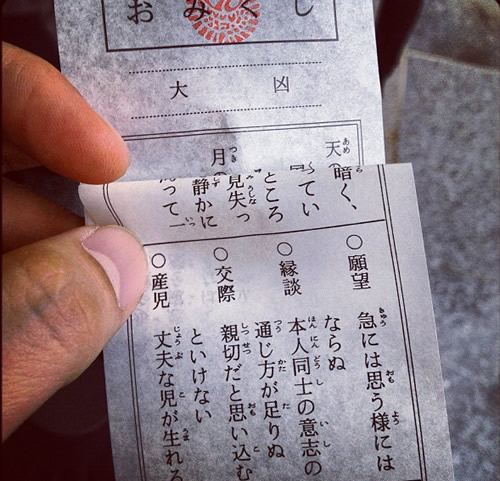 おみくじ
大凶
天
月の
暗く、
てい
ところ
見失っ
静かに
って一
○願望 急には思う様には
ならぬ
○縁談 本人同士の意志の
通じ方が足りぬ
○交際 親切だと思い込む
といけない
○産児 丈夫な児が生れる